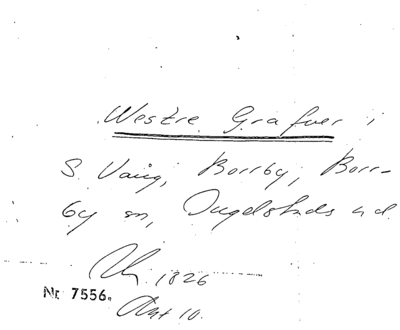 Westre Grafver i
S. Vång, Borrby, Borr-
by sn, Ingelstads hd.
1826
Nr 7556.
Akt 10.